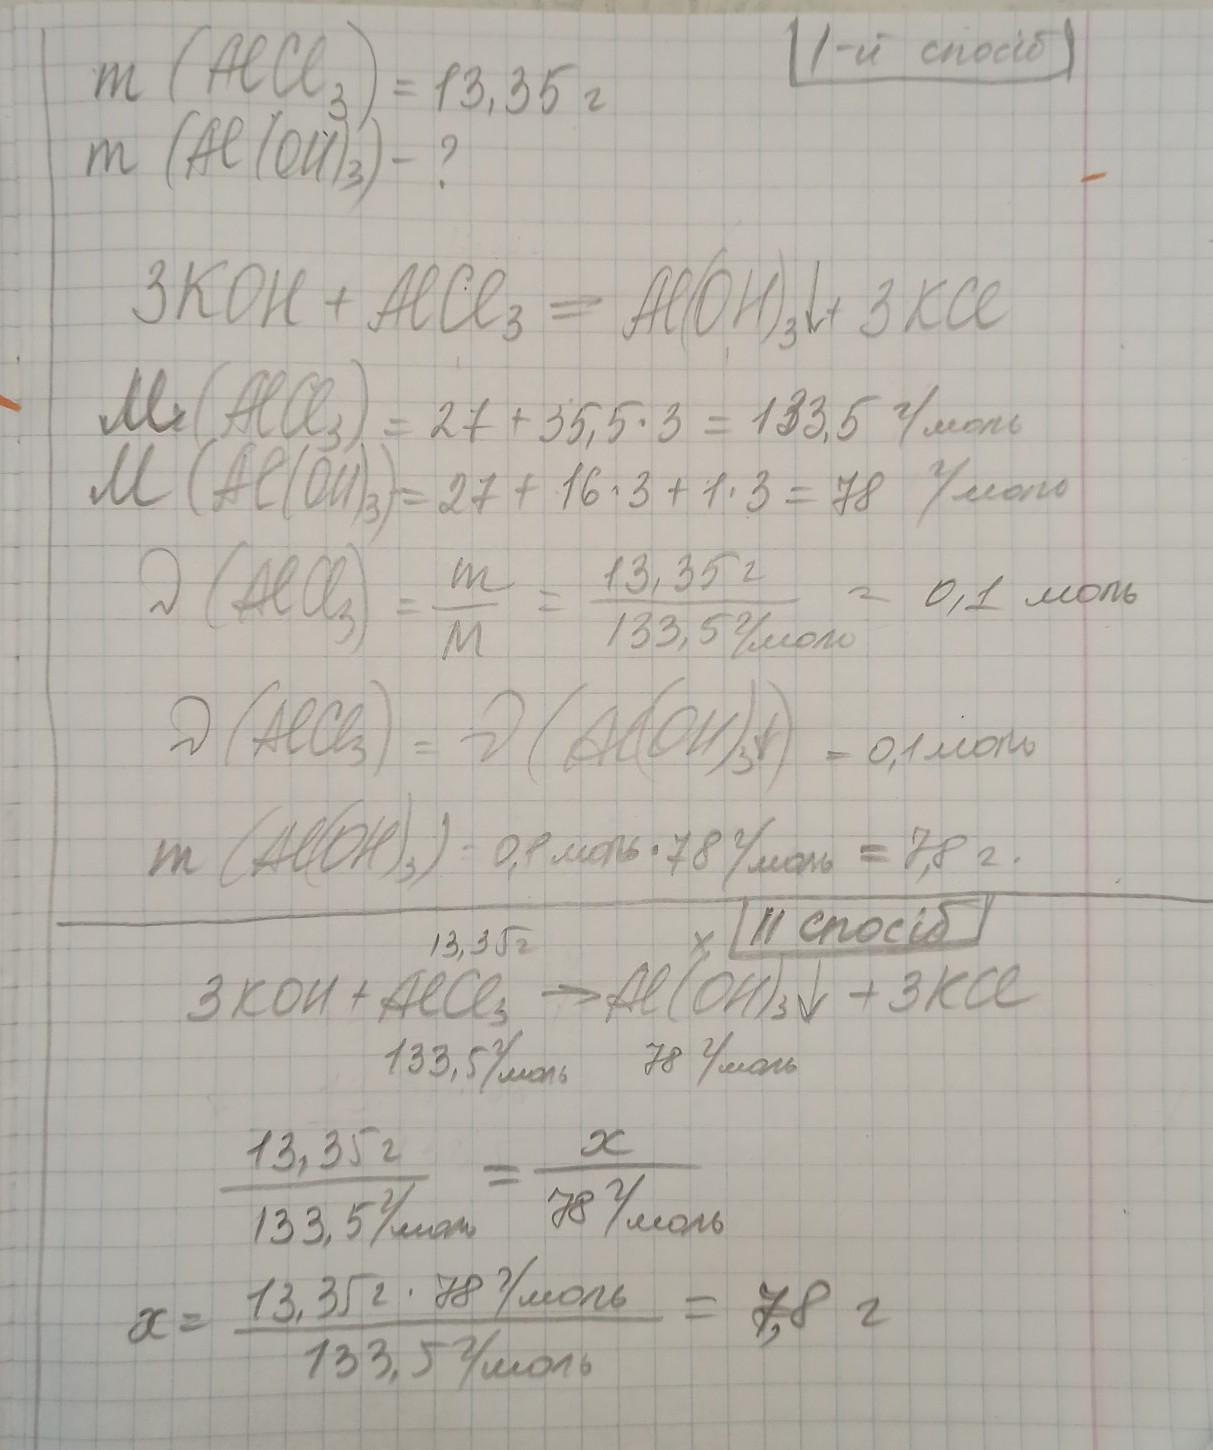 1-й спосіб
m (AlCl₃) = 13,35 г
m (Al(OH)₃) - ?
3KOH + AlCl₃ = Al(OH)₃↓ + 3KCl
Mr (AlCl₃) = 27 + 35,5·3 = 133,5 г/моль
M (Al(OH)₃) = 27 + 16·3 + 1·3 = 78 г/моль
ν (AlCl₃) = m/M = 13,35г/133,5 г/моль = 0,1 моль
ν (AlCl₃) = ν (Al(OH)₃↓) = 0,1 моль
m (Al(OH)₃) = 0,1 моль · 78 г/моль = 7,8 г.
II спосіб
13,35г x
3KOH + AlCl₃ → Al(OH)₃↓ + 3KCl
133,5 г/моль 78 г/моль
13,35г/133,5 г/моль = x/78 г/моль
x = 13,35г · 78 г/моль/133,5 г/моль = 7,8 г